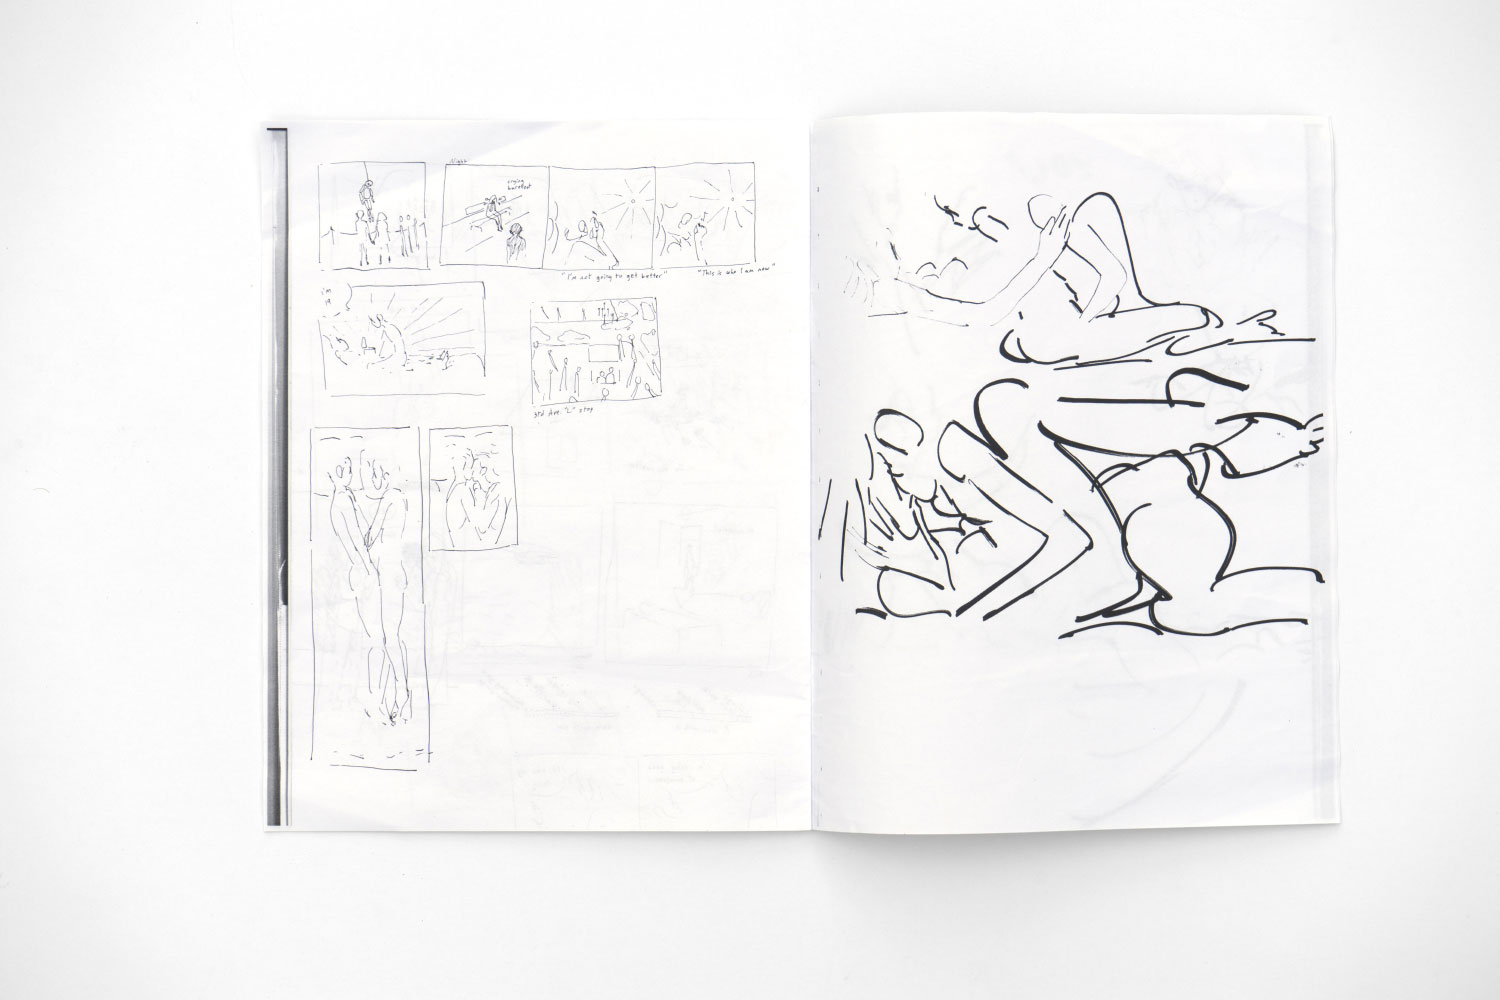 Night
crying
barefoot
"I'm not going to get better"
"This is who I am now"
i'm
19
3rd Ave. "L" stop